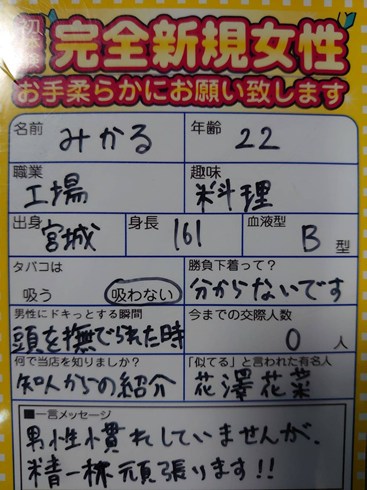 初登楼
完全新規女性
お手柔らかにお願い致します
名前 みかる 年齢 22
職業 工場 趣味 料理
出身 宮城 身長 161 血液型 B 型
タバコは 吸う 吸わない
勝負下着って? 分からないです
男性にドキっとする瞬間 頭を撫でられた時
今までの交際人数 0 人
何で当店を知りましたか? 知人からの紹介
「似てる」と言われた有名人 花澤花菜
■一言メッセージ
男性慣れしていませんが、
精一杯頑張ります!!